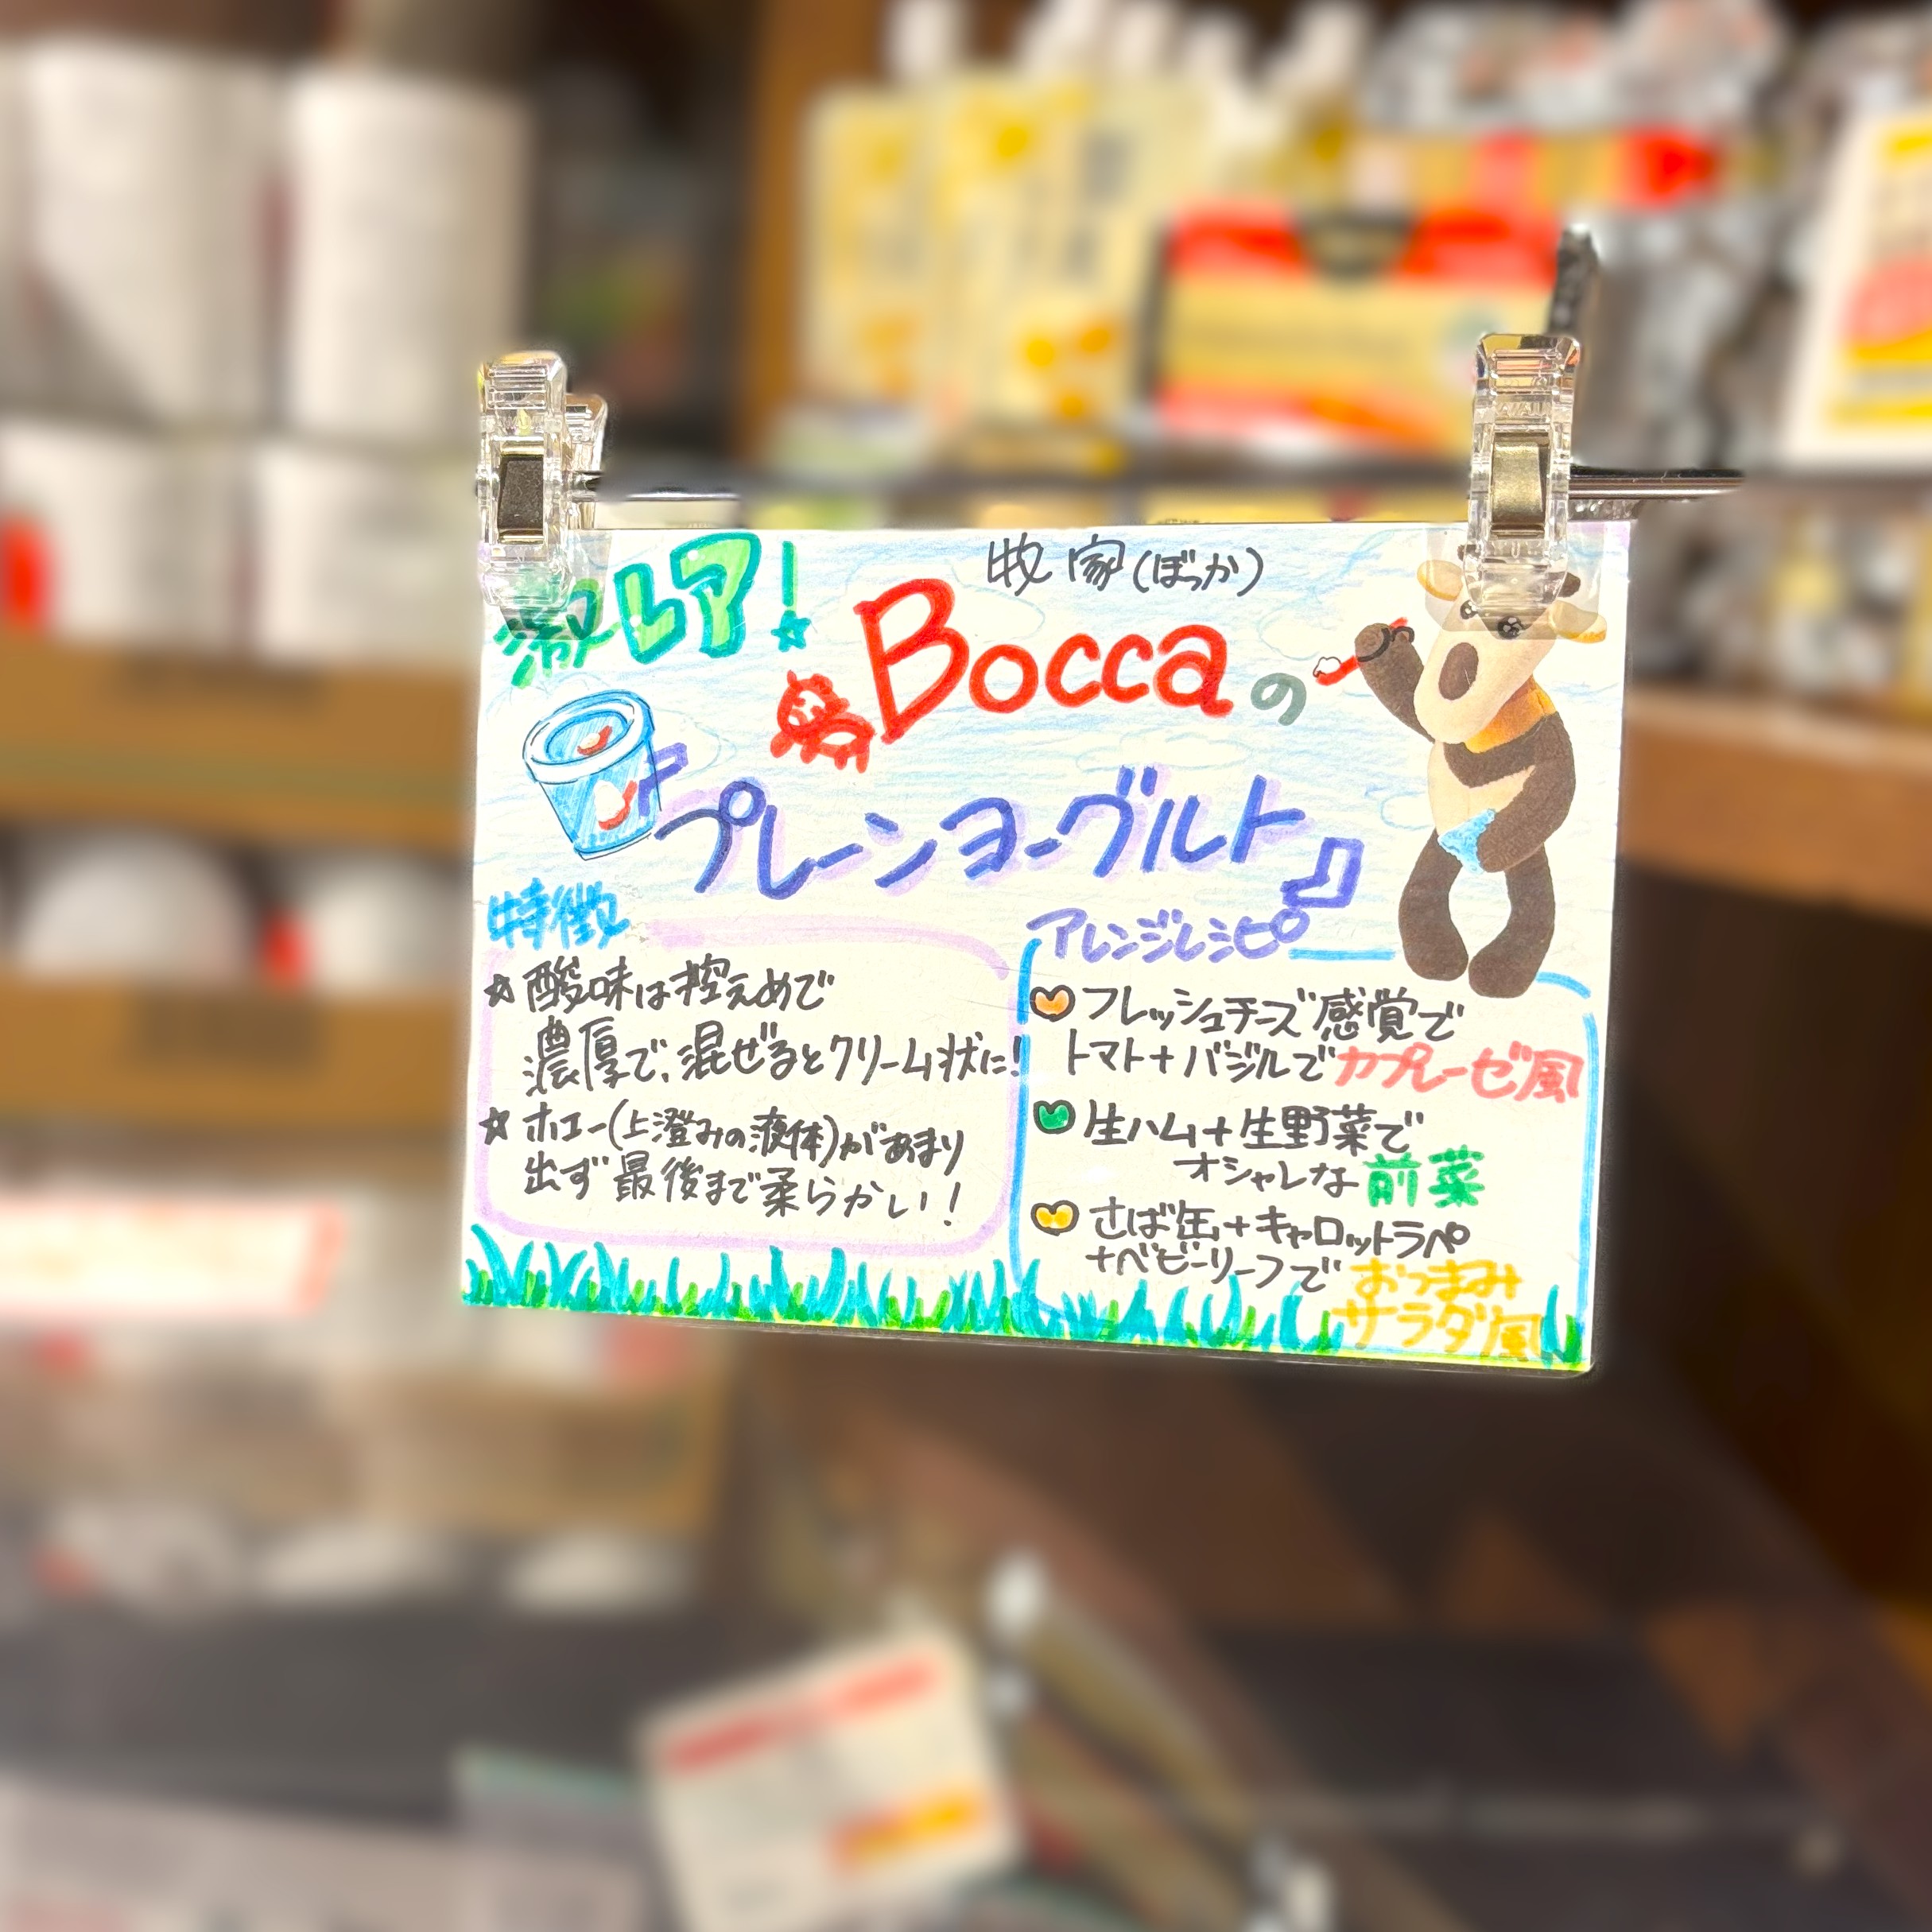 激レア!
牧家(ぼっか)
Boccaの
『プレーンヨーグルト』
特徴
☆酸味は控えめで
濃厚で、混ぜるとクリーム状に!
☆ホエー(上澄みの液体)があまり
出ず最後まで柔らかい!
アレンジレシピ
フレッシュチーズ感覚で
トマト+バジルでカプレーゼ風
生ハム+生野菜で
オシャレな前菜
さば缶+キャロットラペ
+ベビーリーフで
おつまみ
サラダ風